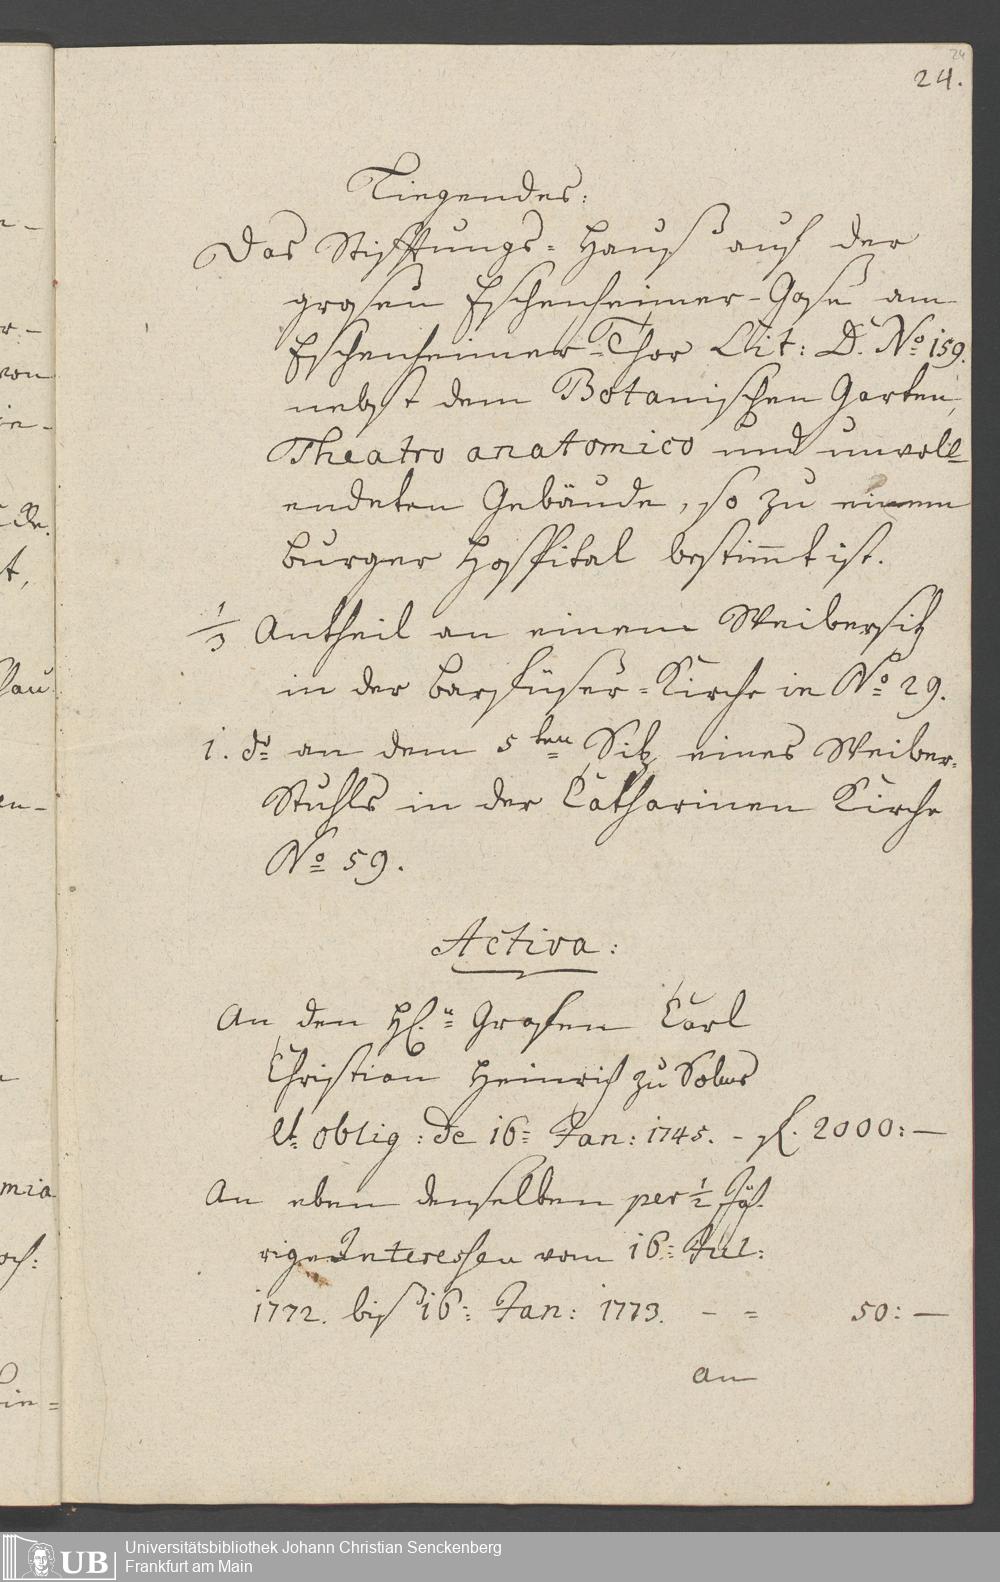 24
24.
Liegendes:
Das Stifftungs-Hauß auf der
grosen Eschenheimer-Gaße am
Eschenheimer-Thor Lit: D. No 159.
nebst dem Botanischen Garten,
Theatro anatomico und unvoll=
endeten Gebäude, so zu einem
burger Hospital bestimt ist.
1/3 Antheil an einem Weibersitz
in der Barfüser-Kirche in No 29.
1. do an dem 5ten Sitz eines Weiber=
Stuhls in der Catharinen Kirche
No 59.
Activa:
An den H. Grafen Carl
Christian Heinrich zu Solms
lt. oblig: de 16= Jan: 1745. - fl. 2000: —
An eben denselben per 1/2 Jäh=
rige Interessen vom 16= Jul:
1772. biß 16= Jan: 1773. - = 50: —
an
von
mia
UB
Universitätsbibliothek Johann Christian Senckenberg
Frankfurt am Main